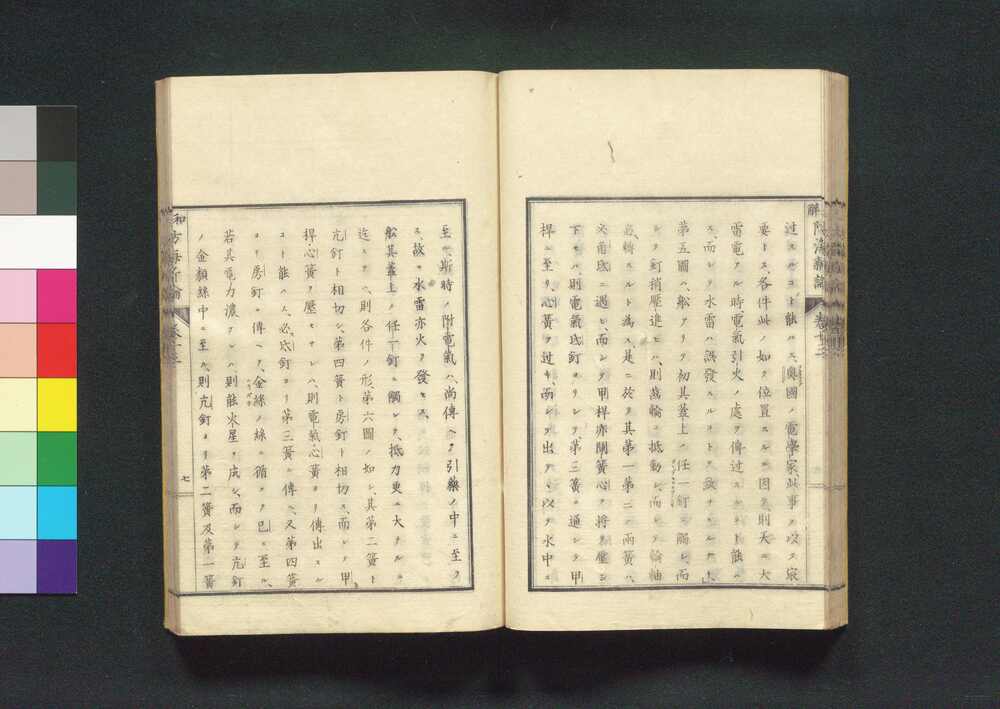 過スルコト能ハス、奥國ノ電學家此事ヲ以テ宼
要トス、各件此ノ如ク位置スルニ因テ、則天ニ大
雷電アル時、電氣引火ノ處ヲ傳過スルコト能ハ
ス、而シテ水雷ハ誤發スルコトヲ致サ
第五圖ハ、船アリテ初其蓋上ノ任一釘ニ觸レ、而
シテ釘稍壓進セハ、則齒輪ニ抵動シ、而シテ輪軸
必轉スルト為ス、是ニ於テ其第一第二ノ兩簧ハ、
甬底ニ遇ヒ、而シテ甲桿亦開簧心ヲ將テ壓シ
下セハ、則電氣底釘ヨリシテ第三簧ニ通シテ甲
桿ニ至リ、心簧ヲ過キ、而シテ出テ、以テ水中ニ
至ル、斯時ノ附電氣ハ、尚傳ヘテ引藥ノ中ニ至ラ
ス、故ニ水雷亦火ヲ發セス、
船其蓋上ノ任一釘ニ觸レテ、抵力更ニ大ナルニ
迄ヘハ、則各件ノ形第六圖ノ如シ、其第二簧ト
亢釘ト相切シ、第四簧ト房釘ト相切ス、而シテ甲
桿心簧ヲ壓セサレハ、則電氣心簧ヨリ傳出スル
コト能ハス、必底釘ヨリ第三簧ニ傳ヘ、又第四簧
ヨリ房釘ニ傳ヘテ、金線ノ線ニ循テ已ニ至ル、
若其電力濃ケレハ、則能火星ヲ成シ、而シテ亢釘
ノ金類絲中ニ至ル、則亢釘ヨリ第二簧及第一簧
防海新論
卷十二
七